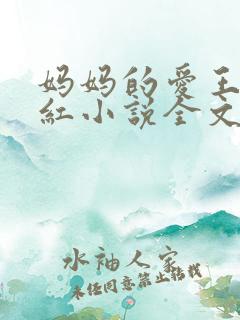 妈妈的爱王
红小说全文
水袖人家
未经同意禁止转载